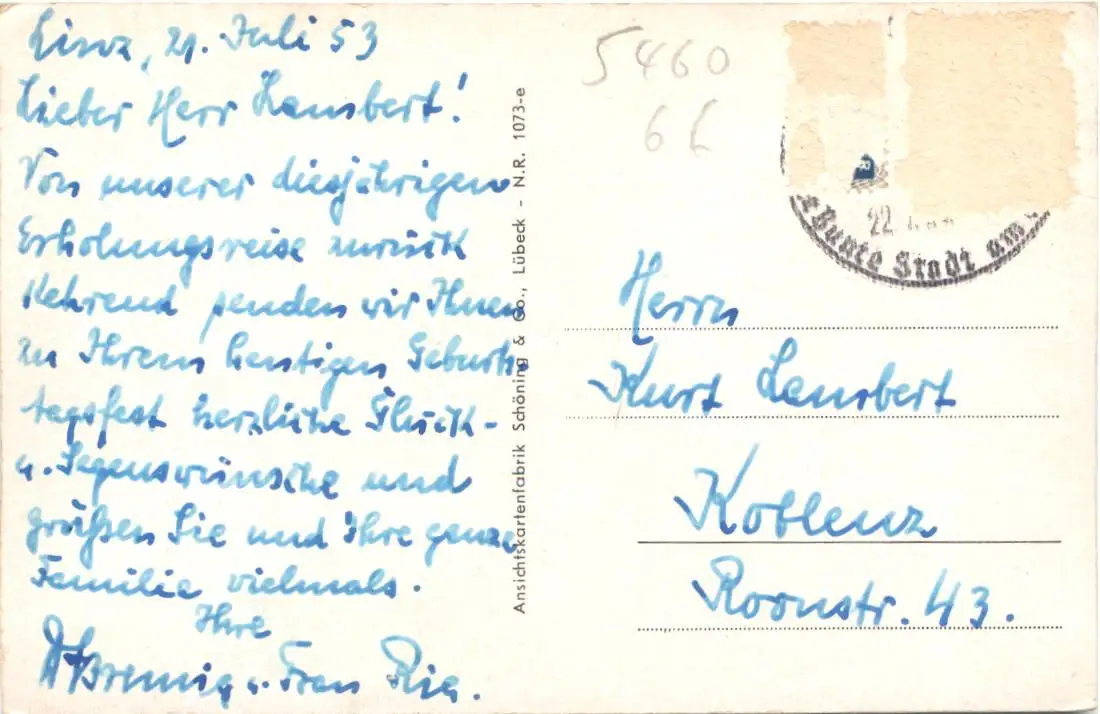 Linz, 21. Juli 53
Lieber Herr Lambert!
Von unserer diesjährigen
Erholungsreise zurück
kehrend senden wir Ihnen
zu Ihrem heutigen Geburts
tagsfest herzliche Glück-
u. Segenswünsche und
grüßen Sie und Ihre ganze
Familie vielmals.
Ihre
u. Frau Ria.
Ansichtskartenfabrik Schöning & Co., Lübeck - N.R. 1073-e
5460
22.
Bunte Stadt am
Herrn
Kurt Lambert
Koblenz
Roonstr. 43.